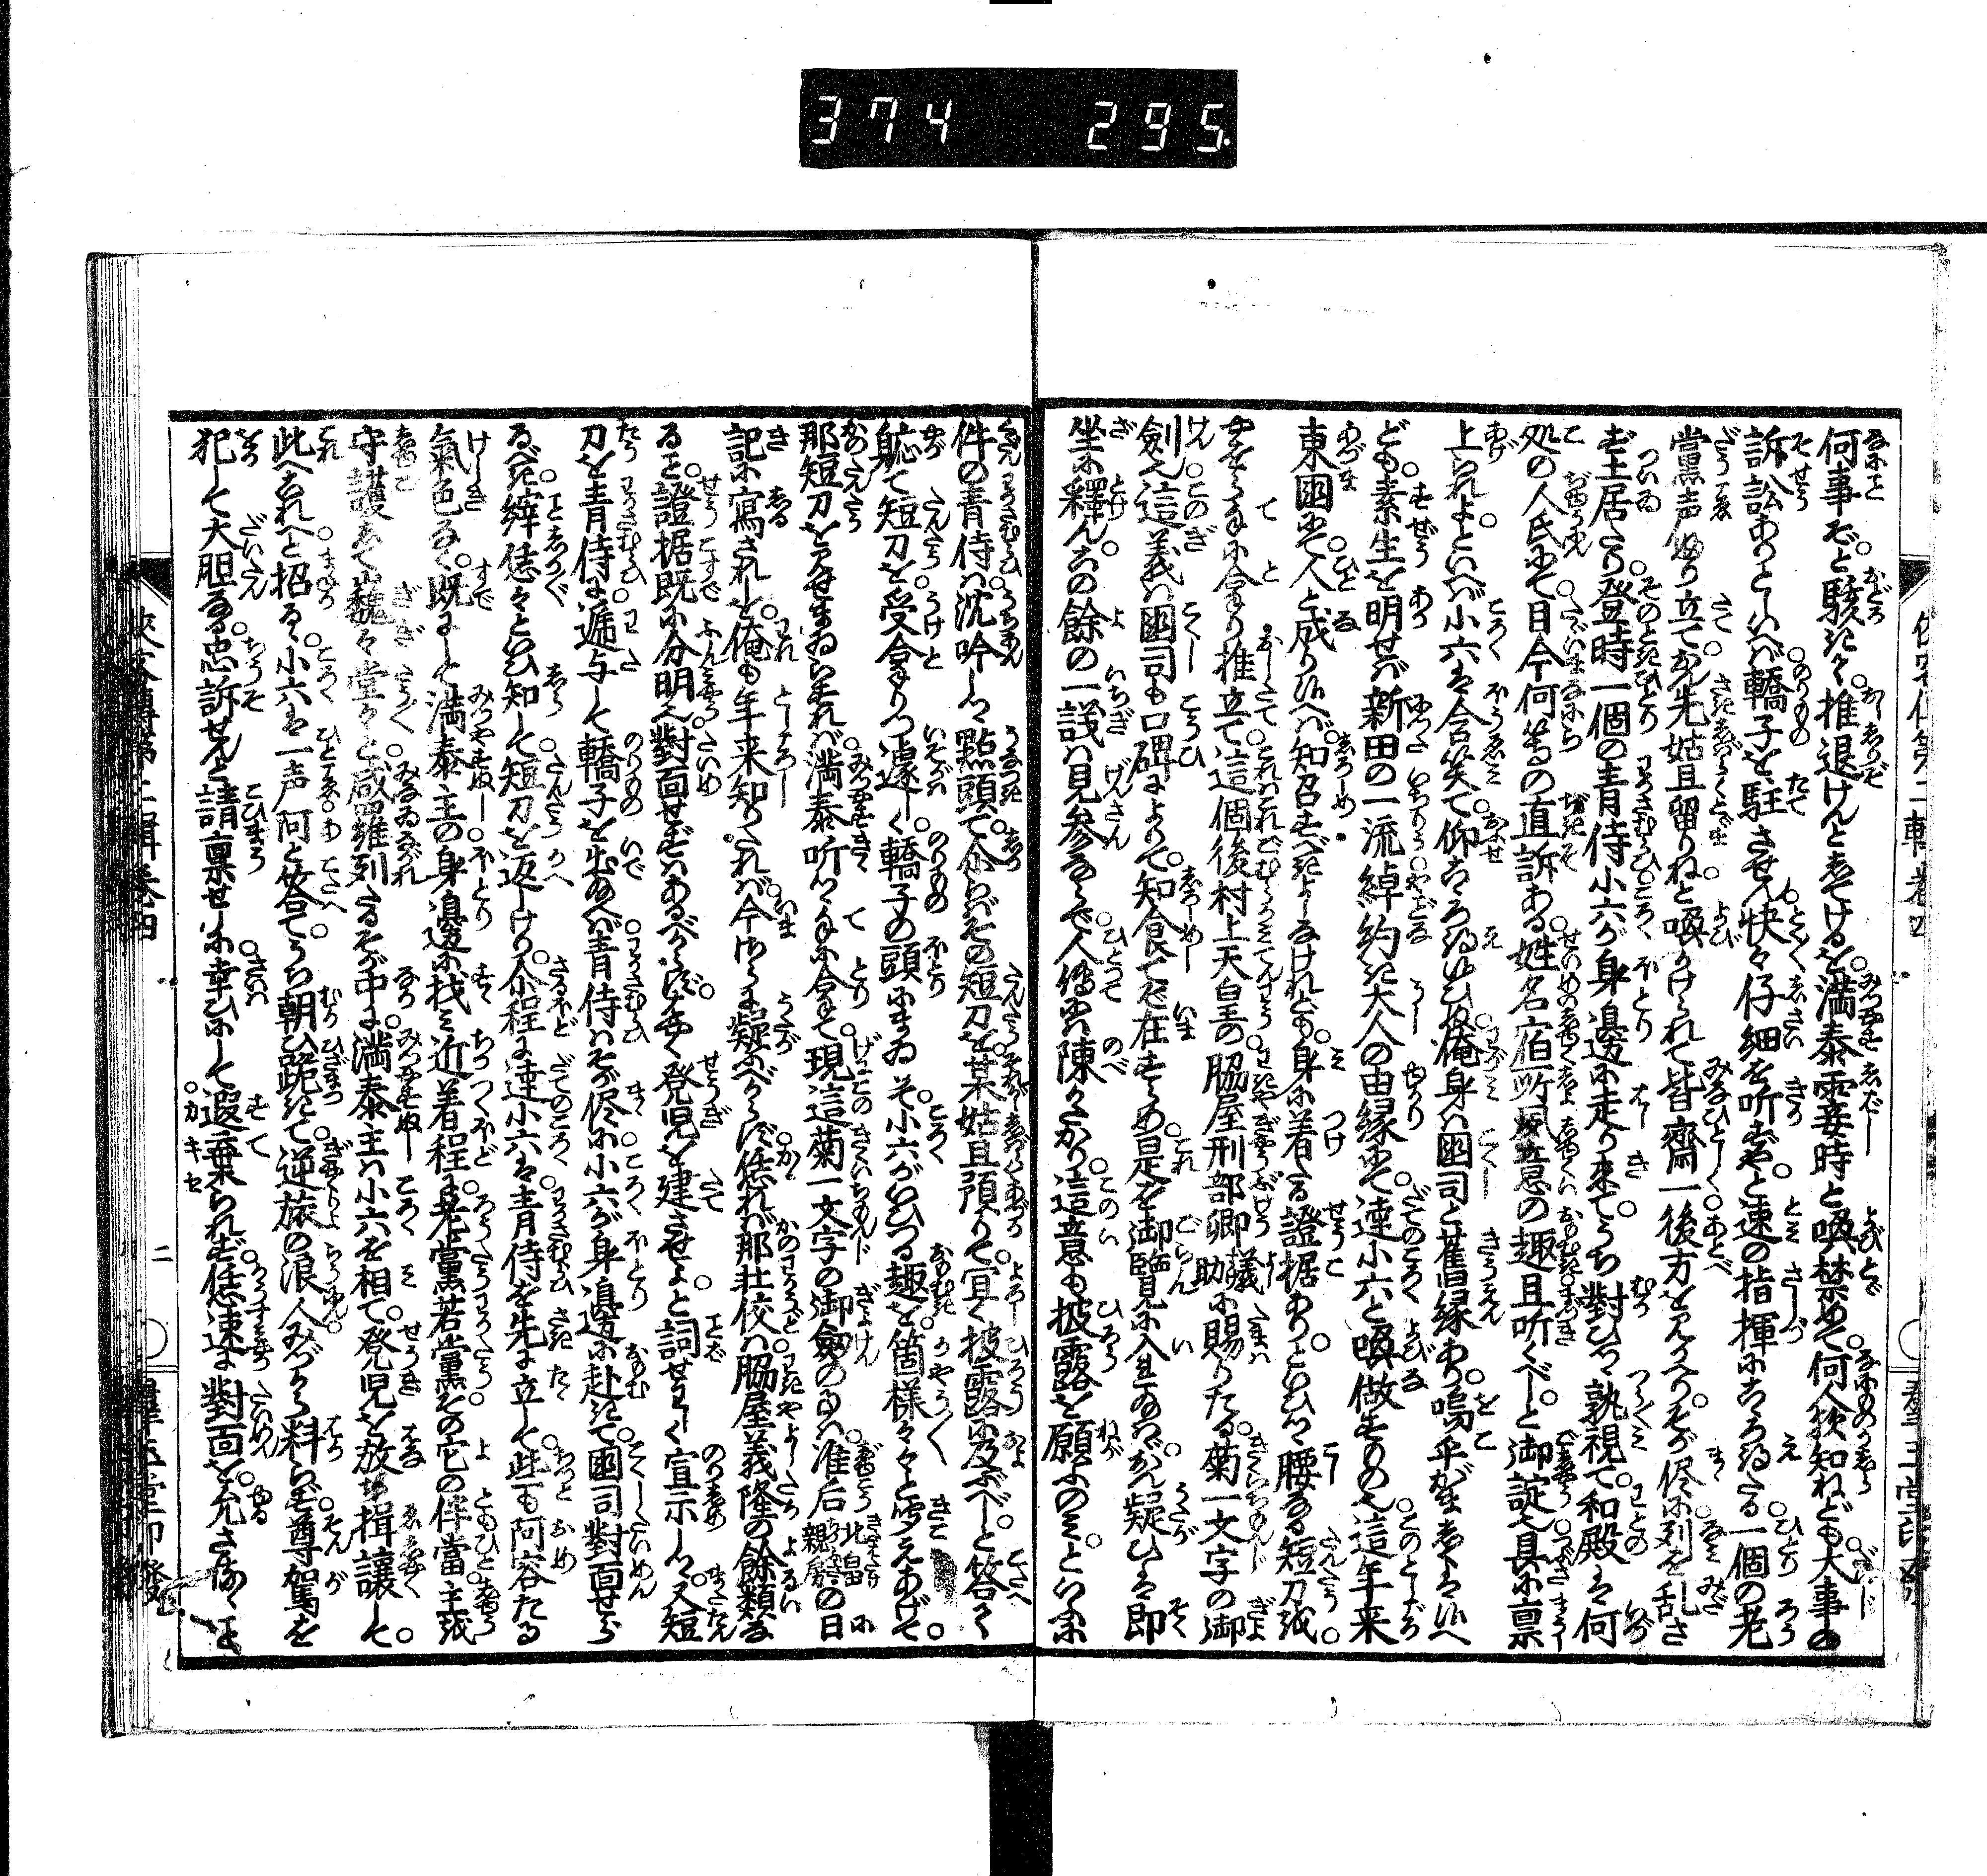 374 295
何事ぞと駭きて推退けんとしてけるを満泰霎時と喚禁めて何人欤知ねども大事の
訴訟ありといへば轎子を駐させん快々仔細を听ずやと速の指揮にこゝろ得たる一個の老
黨声ふり立てやよ先姑且留りねと喚かけられて皆齊一後方を見かへりつゝその侭に列を乱さ
ず土居たり登時一個の青侍小六が身邊に走り来てうち對ひつゝ熟視て和殿は何
処の人氏にて目今何等の直訴ある姓名宿所意の趣且听くべしと御諚也具に禀
上られよといへば小六は含笑て仰こゝろ得侍ひぬ俺身は國司と舊縁あり嗚呼がましくは侍へ
ども素生を明せば新田の一流綽約き大人の由縁にて達小六と喚做すもの也這年来
東國にて人と成り侍へば知召すべきよしなけれども身に着る證据ありといひつゝ腰なる短刀を
やをら手に合りつ推立て這個後村上天皇の脇屋刑部卿義助に賜りたる菊一文字の御
劍也這義は國司も口碑によりて知食てぞ在すらめ是を御臨見に入まゐらせなばおん疑ひは即
坐に釋んその餘の一議は見参ならで人傳には陳かたかり這意も披露を願ふのみといふに
件の青侍は沈吟しつゝ點頭て尒らばその短刀を某姑且預りて宜く披露に及ぶべしと答て
軈て短刀を受合りつ遽しく轎子の頭にまゐりて小六がいひつる趣を箇様々々と聞えあげて
那短刀を見せまゐらすれば満泰听つゝ手に合て現這菊一文字の御劍の事は准后北畠親房の日
記に寫されしを俺も年来知りたれば今さらに疑ふべからず恁れば那壮佼は脇屋義隆の餘類な
るを證据既に分明也對面せずはあるべからずとく登児を建させよと詞せわしく宣示しつゝ又短
刀を青侍に逓与して轎子を出給へば青侍はその侭に小六が身邊に赴きて國司對面せら
るべき縡恁々といひ知して短刀を返しけり尒程に達小六は青侍を先に立して些も阿容たる
氣色なく既にして満泰主の身邊に找み近着程に老黨若黨その它の伴當主を
守護して巍々堂々と咸羅列たるその中に満泰主は小六を相て登児を放ち揖讓して
此へこれへと招るゝ小六は一声阿と答てうち朝ひ跪きて逆旅の浪人みづから料らず尊駕を
犯して大胆なる忠訴せんと請禀せしに幸ひにして遐棄られず恁速に對面を允さるゝこと
カキセ
二